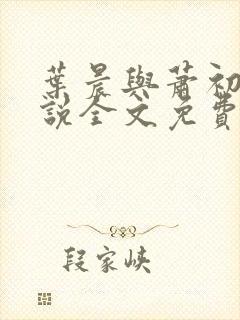 葉晨與蕭初
說全文免費
段家峽